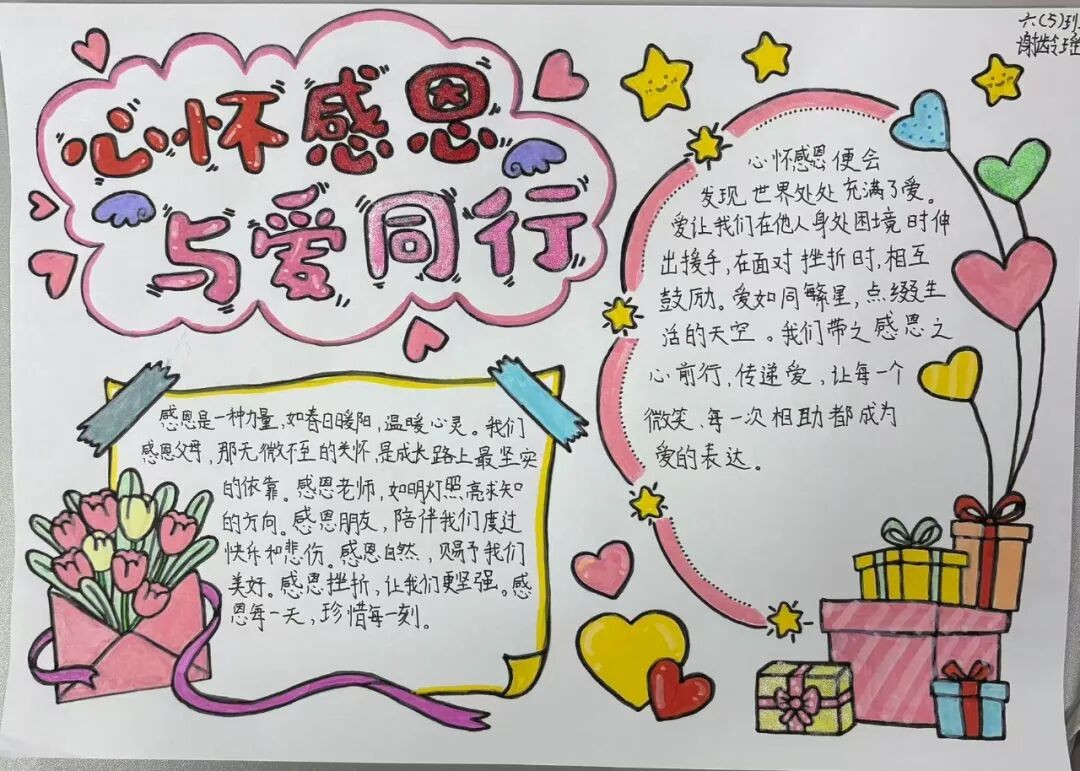 心怀感恩
与爱同行
六(5)班
谢龄瑶
感恩是一种力量,如春日暖阳,温暖心灵。我们
感恩父母,那无微不至的关怀,是成长路上最坚实
的依靠。感恩老师,如明灯照亮求知
的方向。感恩朋友,陪伴我们度过
快乐和悲伤。感恩自然,赐予我们
美好。感恩挫折,让我们更坚强。感
恩每一天,珍惜每一刻。
心怀感恩便会
发现世界处处充满了爱。
爱让我们在他人身处困境时伸
出援手,在面对挫折时,相互
鼓励。爱如同繁星,点缀生
活的天空。我们带之感恩之
心前行,传递爱,让每一个
微笑、每一次相助都成为
爱的表达。